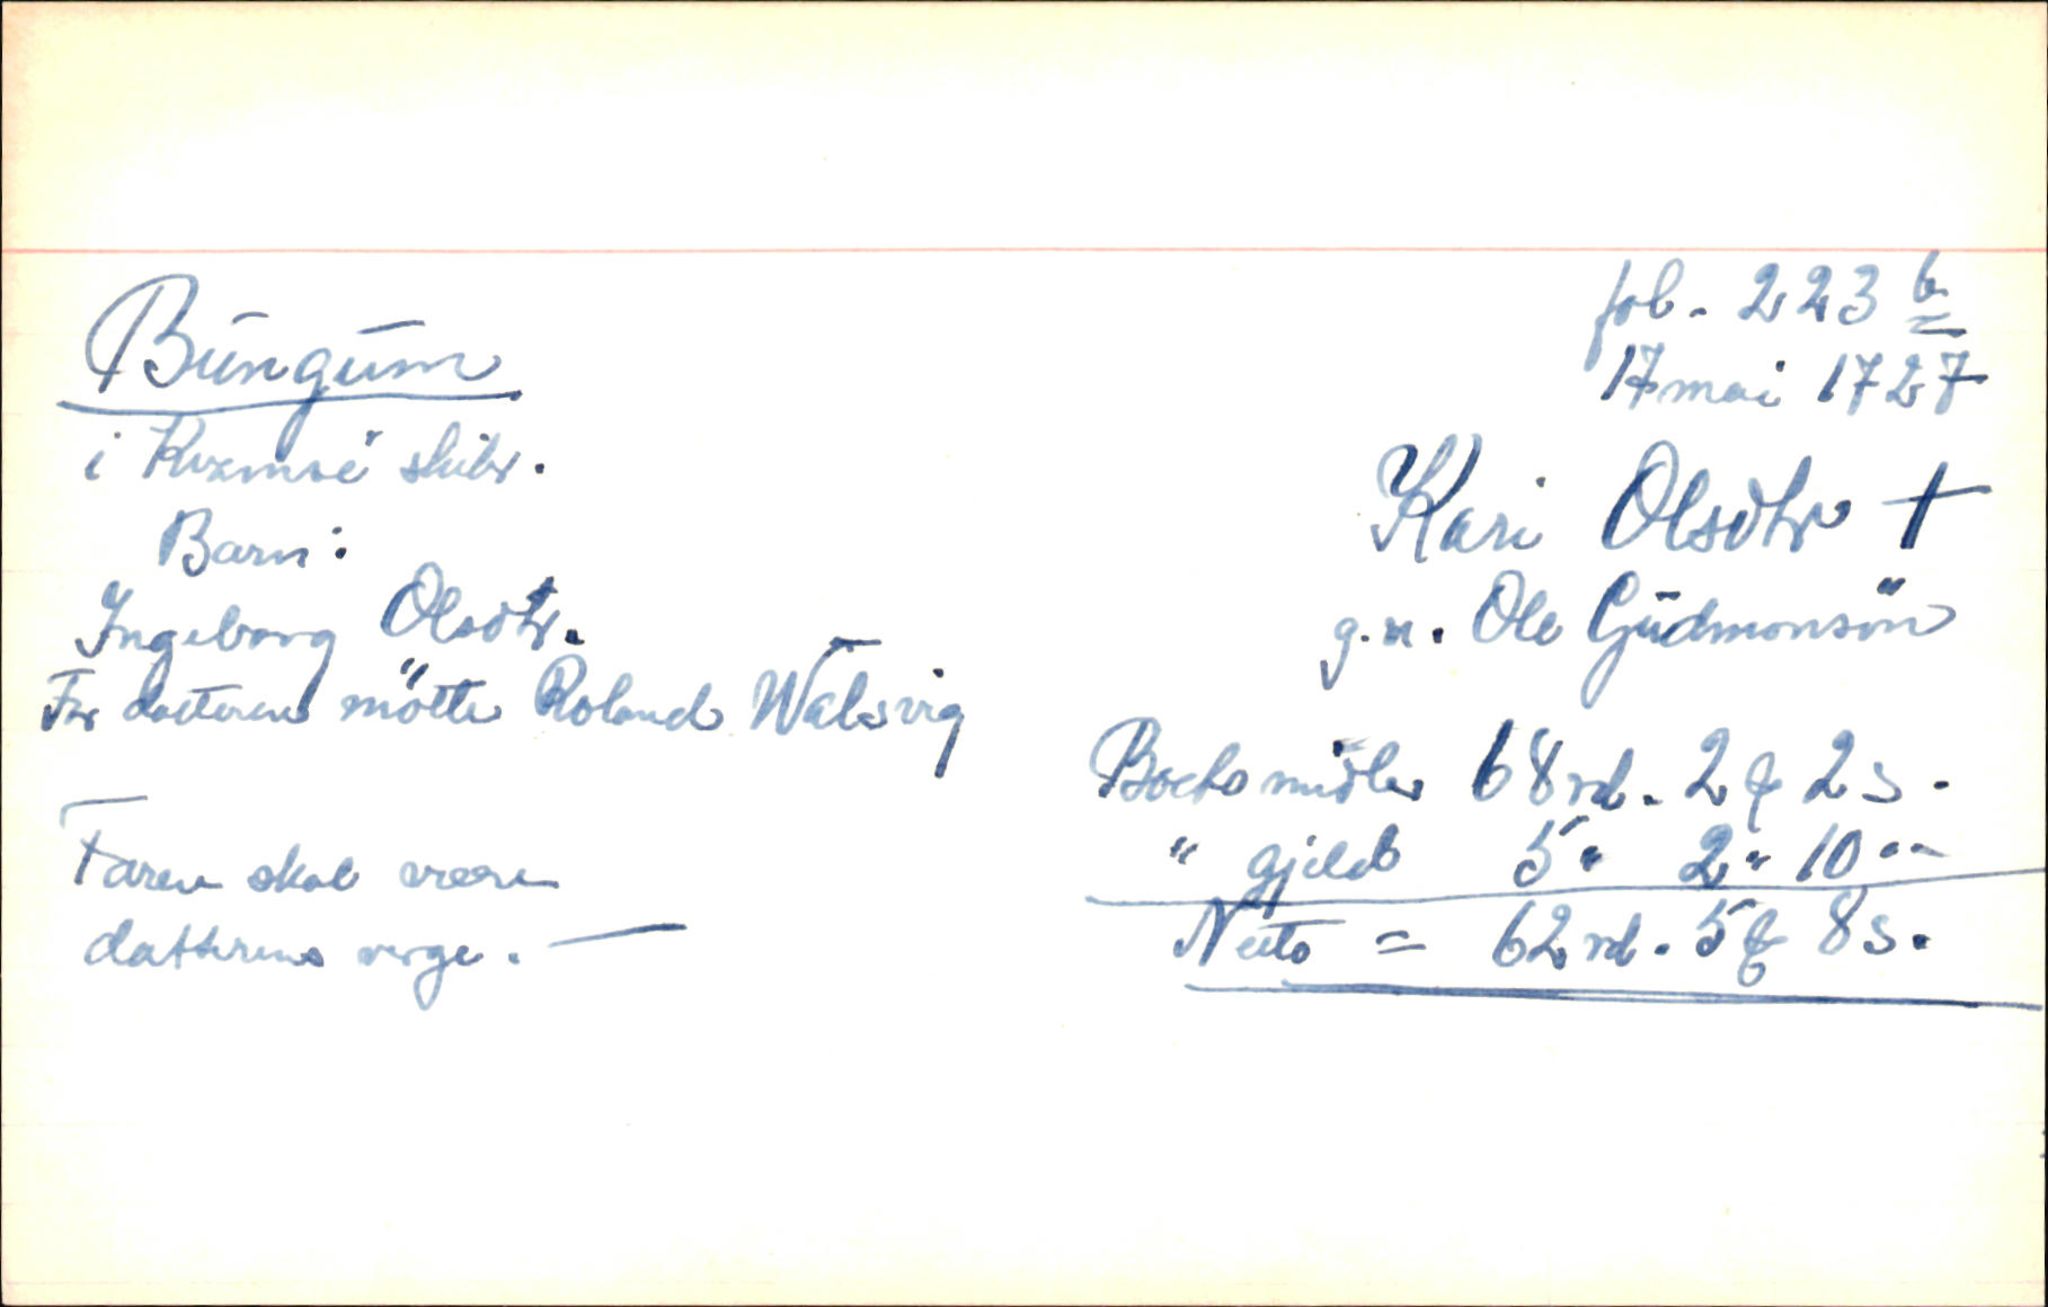 fol. 223 b
17 mai 1727
Bungum
i Kvamsøe skibr.
Kari Olsdtr †
Barn:
Ingeborg Olsdtr.
g.m. Ole Gudmonsön
For datteren mötte Roland Walsvig
Boets midler 68 rd. 2 ƒ 2 s.
" gjeld 5 " 2 " 10 "
Faren skal være
datterens verge. —
Netto = 62 rd. 5 ƒ 8 s.